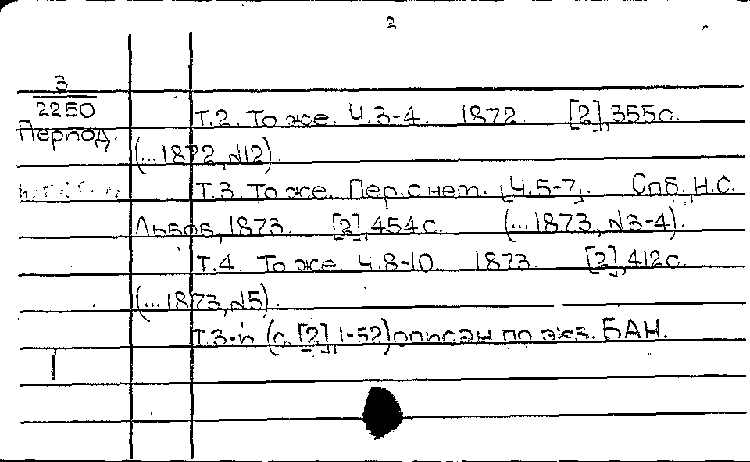 2
3
2250
Т.2. То же. Ч.3-4. 1872. [2],355с.
Период.
(...1872,№12).
Т.3. То же. Пер. с нем. [Ч.5-7]. Спб.,Н.С.
Львов,1873. [2],454с. (...1873,№3-4).
Т.4. То же Ч.8-10. 1873. [2],412с.
(...1873,№5).
Т.3-й (с.[2],1-52) описан по экз. БАН.